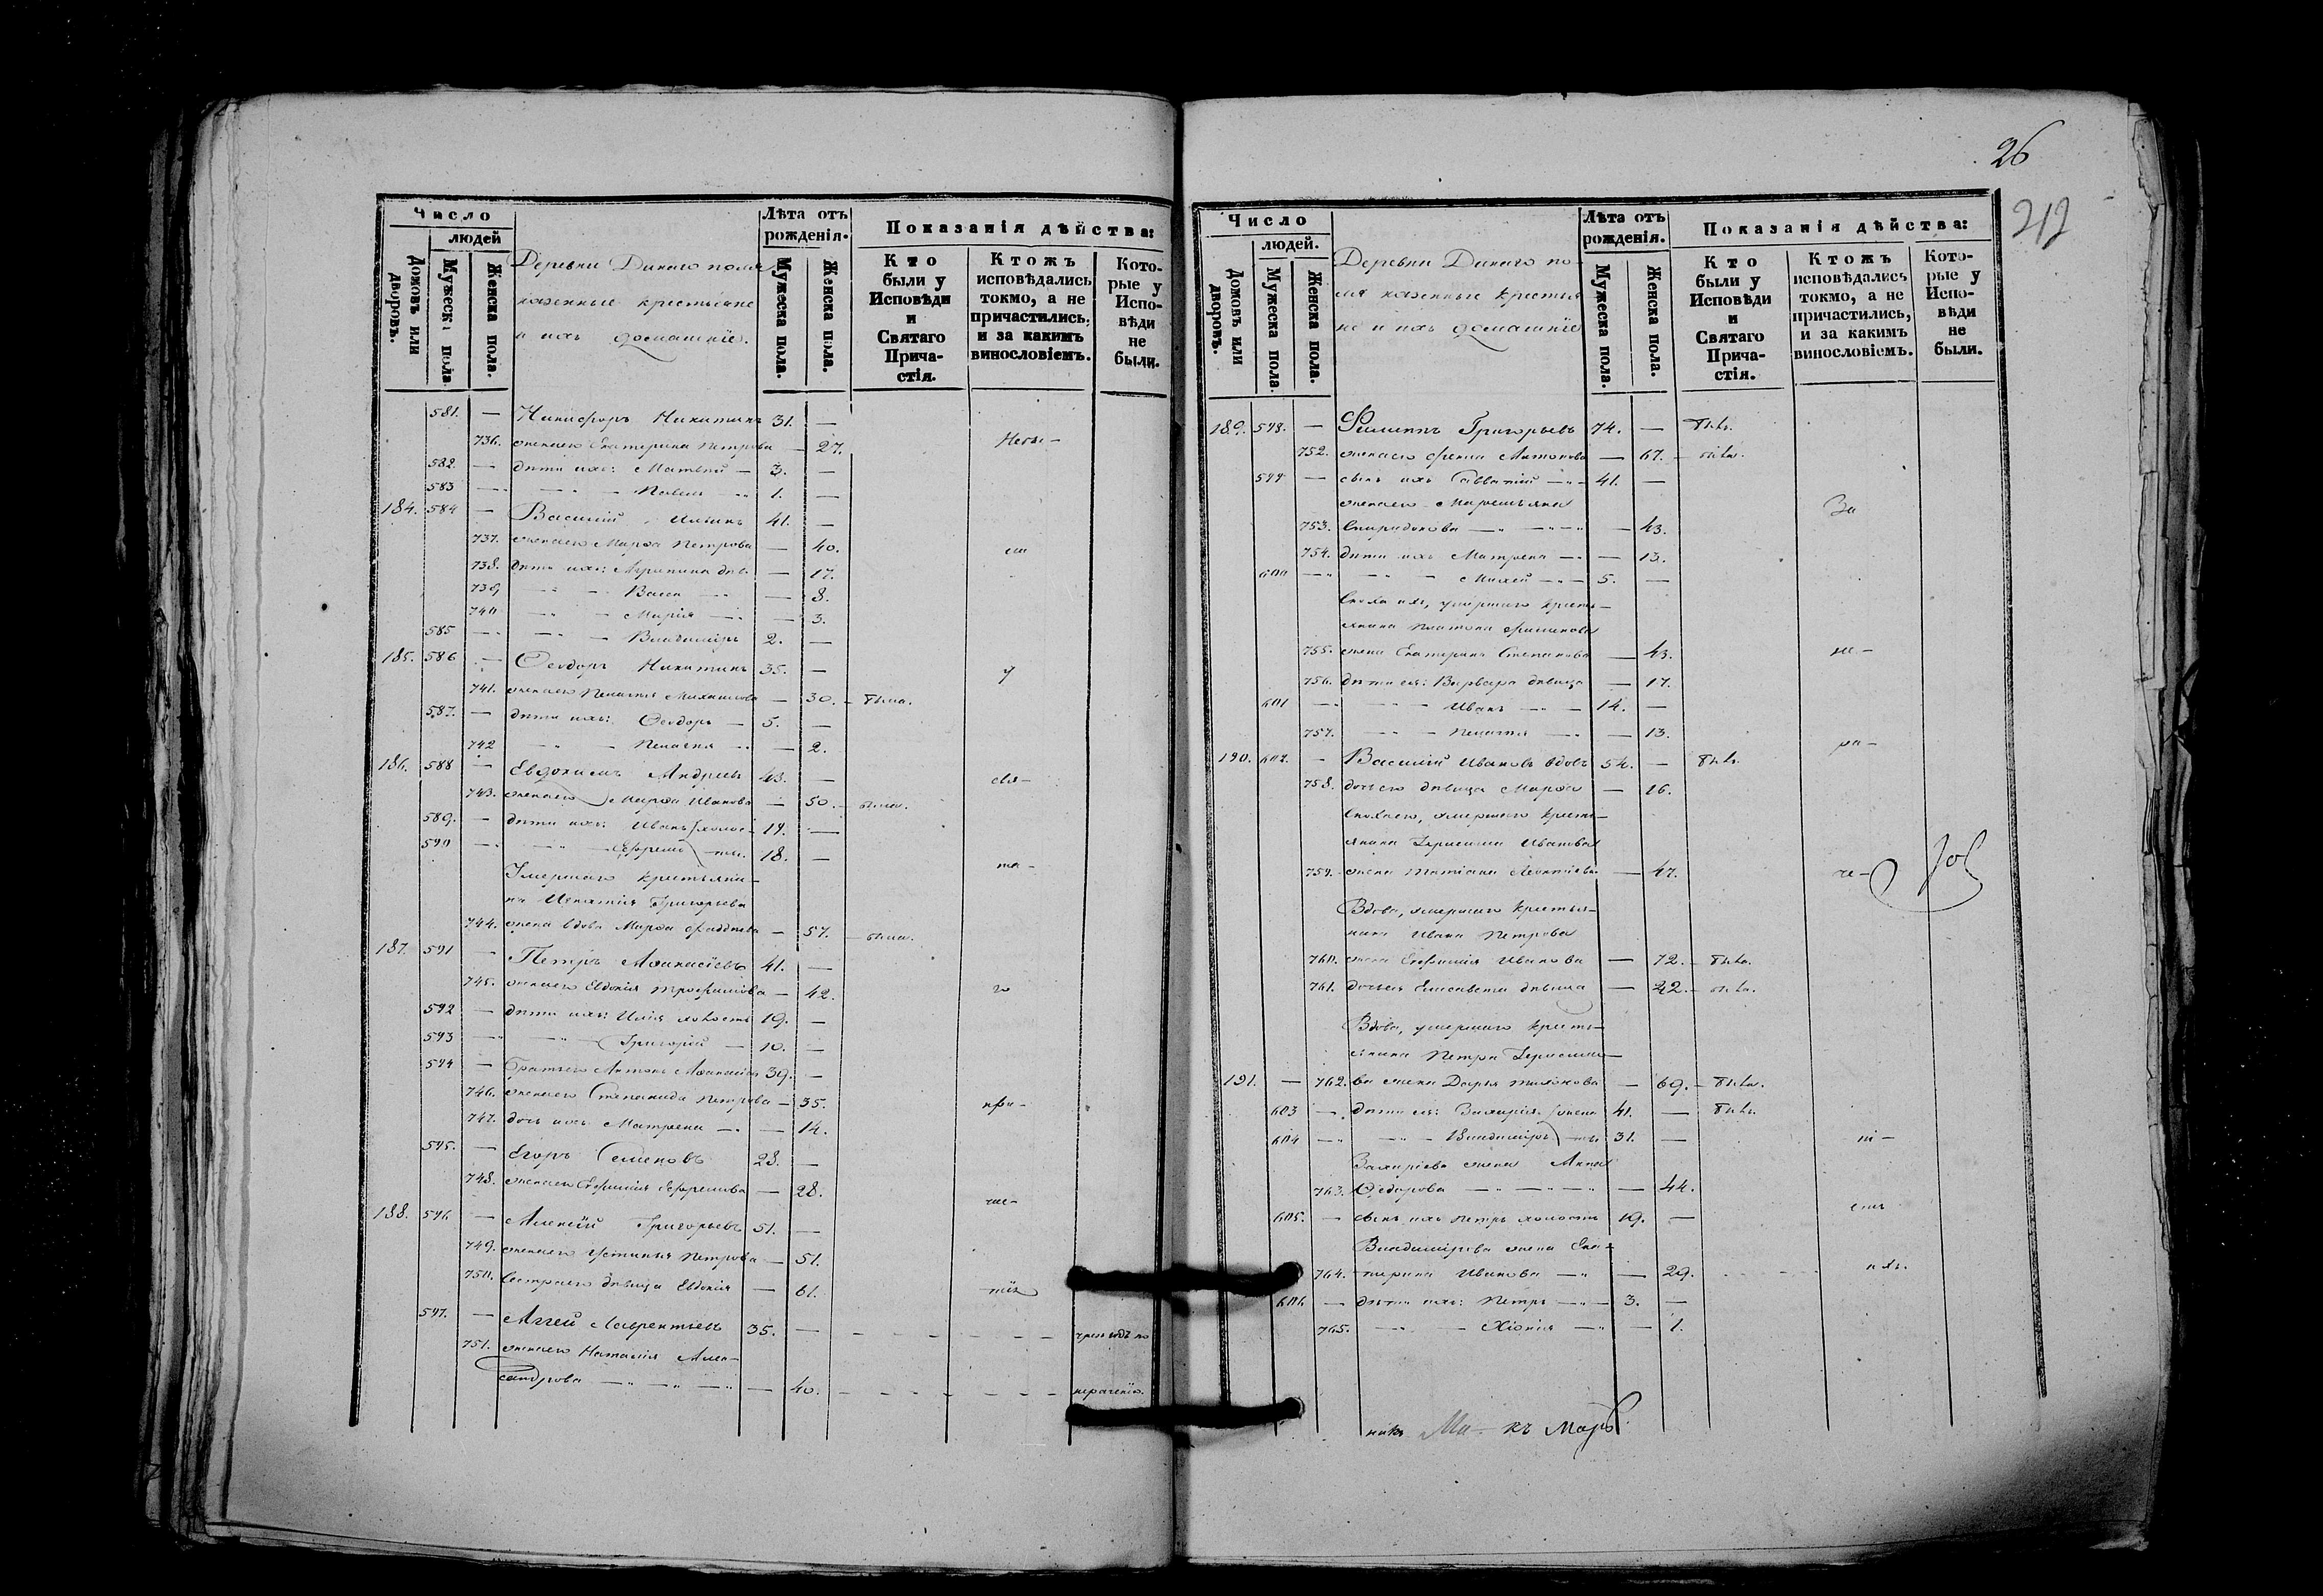 Число
людей
Домовъ или дворовъ.
Мужеска пола
Женска пола.
Деревни Дикаго поля
казенные крестьяне
и ихъ домашніе.
Лѣта отъ рожденія.
Мужеска пола.
Женска пола.
Показанія дѣйства:
Кто были у Исповѣди и Святаго Прича-стія.
Ктожъ исповѣдались токмо, а не причастились, и за какимъ винословіемъ.
Кото-рые у Испо-вѣди не были.
581. — Никифоръ Никитинъ 31. —
736. жена его Екатерина Петрова — 27.
582. — дѣти ихъ: Матвей — 3. —
583 — Павелъ 1. —
184. 584 — Василій Ильинъ 41. —
737. жена его Марѳа Петрова — 40.
738. дѣти ихъ: Агрипина дѣв. — 17.
739 Васса — 8.
740 Марія — 3.
585 — Владиміръ 2. —
185. 586 — Ѳеодоръ Никитинъ 35. —
741. жена его Пелагія Михайлова — 30. — была.
587. — дѣти ихъ: Ѳеодоръ — 5. —
742 Пелагія — 2.
186. 588 — Евдокимъ Андреевъ 43. —
743. жена его Марѳа Иванова — 50. — была.
589. — дѣти ихъ: Иванъ холос- 19. —
590 — Ефремъ — ты. 18. —
Умершаго крестьяни-
на Игнатія Григорьева
744. жена вдова Марѳа Фаддѣева — 57. — была.
187. 591 — Петръ Аѳанасіевъ 41. —
745. жена его Евдокія Трофимова — 42.
592 — дѣти ихъ: Илія холостъ 19. —
593 — Григорій — 10. —
594 — Братъ его Антонъ Аѳанасіевъ 39. —
746. жена его Степанида Петрова — 35.
747. дочь ихъ Матрена — 14.
595. — Егоръ Семеновъ 28. —
748. жена его Евфимія Ефремова — 28.
188. 596 — Алексій Григорьевъ 51. —
749. жена его Устинья Петрова — 51.
750. Сестра его дѣвица Евдокія — 61.
597. — Аггей Лаврентьевъ 35. —
751. жена его Наталія Алек-
сандрова — 40.
нераченію.
26
Число
людей.
Домовъ или дворовъ.
Мужеска пола.
Женска пола.
Деревни Дикаго по-
ля казенные крестья
не и ихъ домашніе
Лѣта отъ рожденія.
Мужеска пола.
Женска пола.
Показанія дѣйства:
Кто были у Исповѣди и Святаго Прича-стія.
Ктожъ исповѣдались токмо, а не причастились, и за какимъ винословіемъ.
Кото-рые у Испо-вѣди не были.
189. 598. — Филиппъ Григорьевъ 74. — былъ.
752. жена его Ѳекла Антонова — 67. — была.
599 — сынъ ихъ Савватій — 41. —
жена его Маремьяна
753. Спиридонова — 43.
За
754. дѣти ихъ Матрена — 13.
600 — Михей — 5. —
Сноха ихъ, умершаго кресть-
янина Платона Филипова
755. жена Екатерина Степанова — 43.
756. дѣти ея: Варвара дѣвица — 17.
601 — Иванъ — 14. —
757. Пелагія — 13.
190. 602. — Василій Ивановъ вдовъ 54. — былъ.
758. дочь его дѣвица Марѳа — 16.
Сноха его, умершаго кресть-
янина Герасима Иванова
759. жена Татіана Леонтіева — 47.
Вдова, умершаго крестья-
нина Ивана Петрова
760. жена Евфимія Иванова — 72. — была.
761. дочь ея Елисавета дѣвица — 42. — была.
Вдова, умершаго кресть-
янина Петра Герасимо-
191. — 762. ва жена Дарья Тихонова — 69. — была.
603 — дѣти ея: Захарія женa 41. — былъ.
604 — Владиміръ — ты 31. —
Захаріева жена Анна
763. Ѳедорова — 44.
605. — сынъ ихъ Петръ холостъ 19. —
Владимірова жена Ека-
764. терина Иванова — 29.
606 — дѣти ихъ: Петръ — 3. —
765. Хіонія — 1.